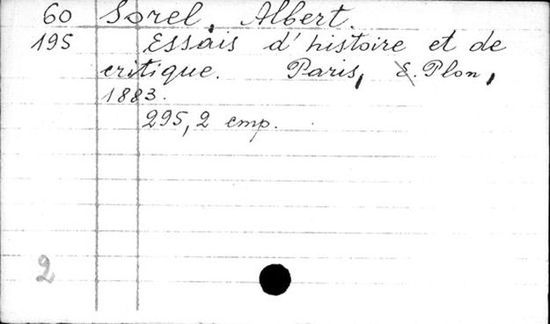 60 Sorel, Albert.
195 Essais d'histoire et de
critique. Paris, E. Plon,
1883.
295,2 стр.
2